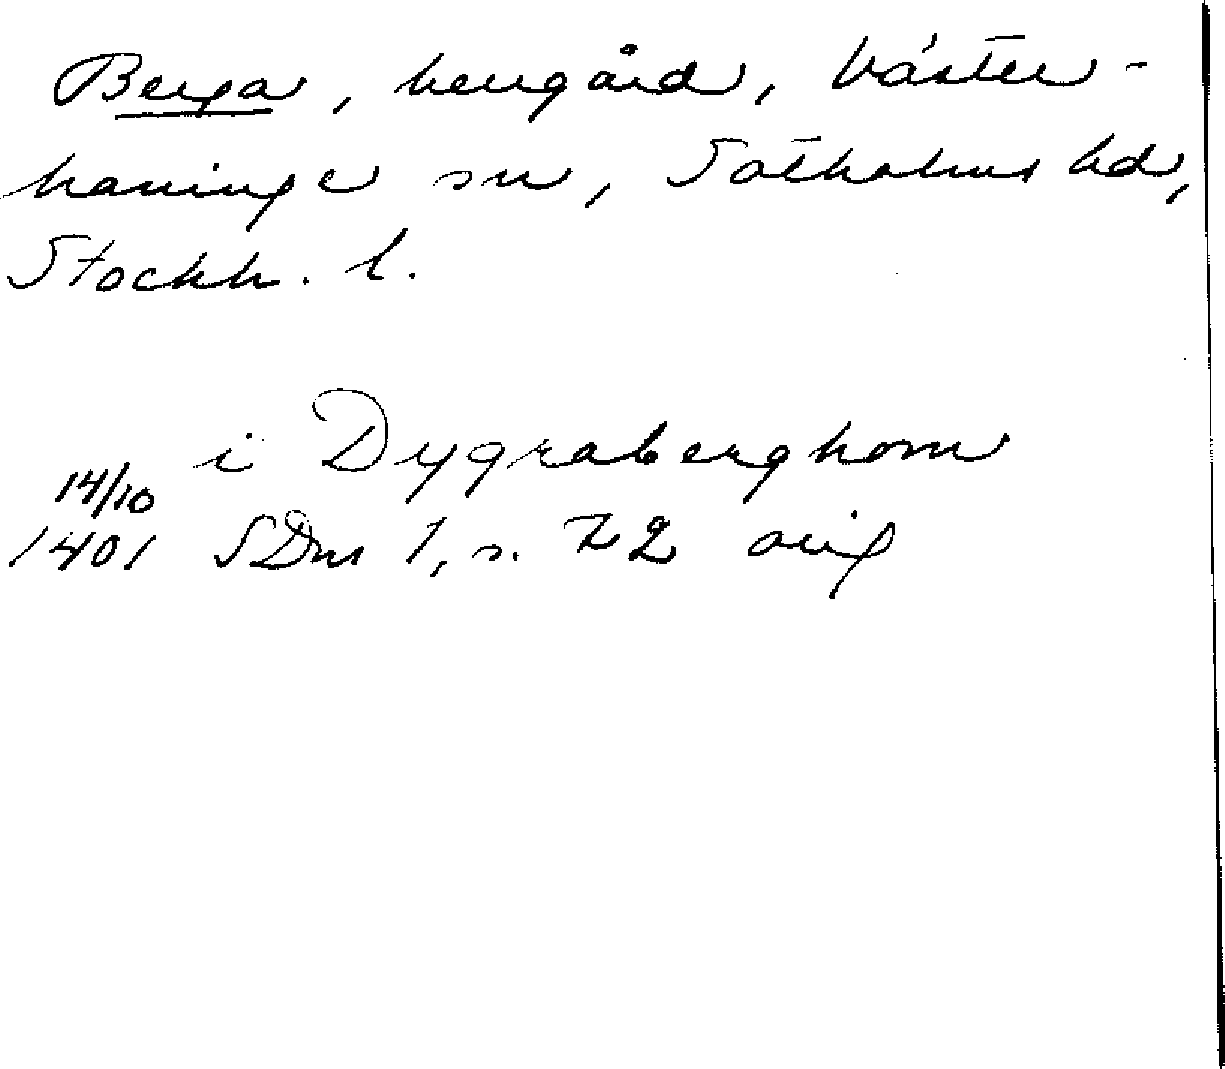 Berga, herrgård, Väster-
haninge sn, Sotholms hd,
Stockh. l.
i Dygraberghom
14/10
1401 SDns 1, s. 72 orig